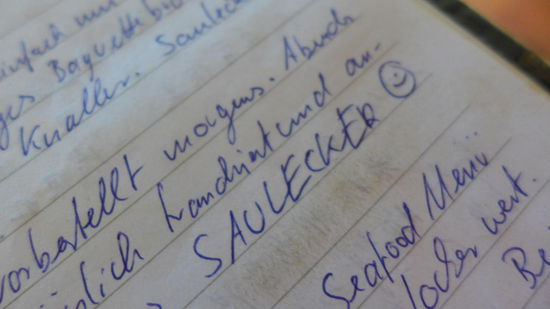 einfach nur
Baguettebrö
Knaller. Saulecke
vorbestellt morgens. Abends
Landrind und an-
SAULECKER ☺
Seafood Menü
locker wert.
Be